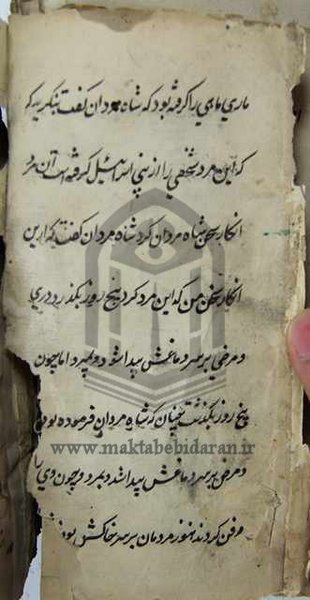 ماری ماهی را گرفته بود که شاه مردان گفت بنگرید که
که این مرد شخصی را از بنی اسرائیل گرفته است آن مرد
انکار سخن شاه مردان کرد شاه مردان گفت که ازین
انکار سخن من که این مرد کرد پنج روز بگذرد دردی
و مرضی بر سر دماغش پیدا شد و بمیرد اما چون
پنج روز بگذشت چنان که شاه مردان فرموده بود
و مرضی بر سر دماغش پیدا شد بمرد و چون وی را
دفن کردند هنوز مردمان بر سر خاکش بودند
www.maktabebidaran.ir